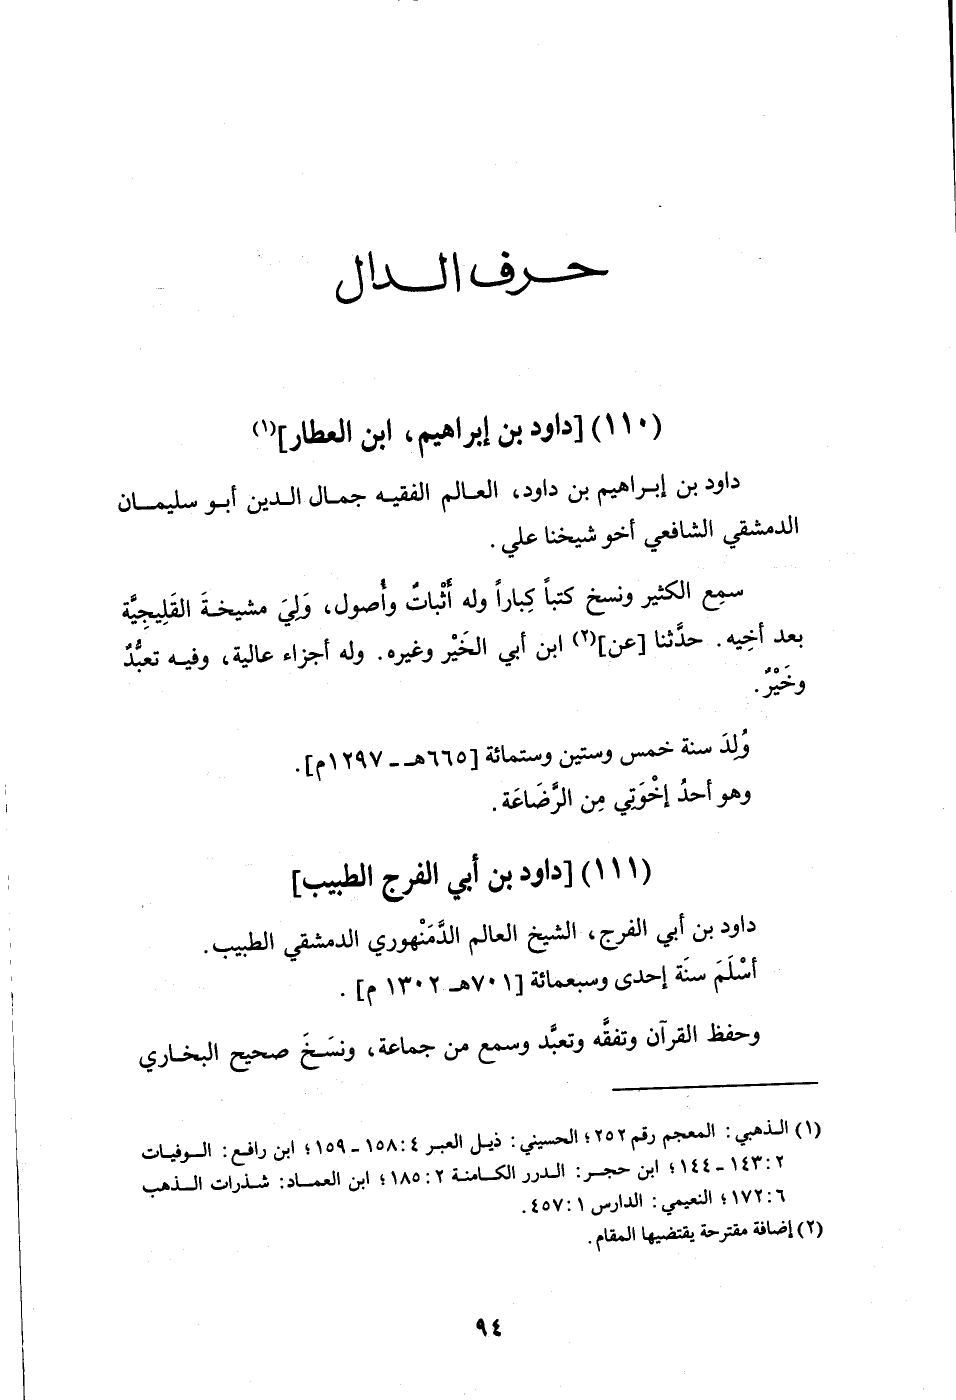 حرف الدال
(١١٠) [داود بن إبراهيم، ابن العطار](١)
داود بن إبراهيم بن داود، العالم الفقيه جمال الدين أبو سليمان
الدمشقي الشافعي أخو شيخنا علي.
سمِع الكثير ونسخ كتباً كِباراً وله أَثْباتٌ وأُصول، وَلِيَ مشيخةَ القَلِيجِيَّة
بعد أخِيه. حدَّثنا [عن](٢) ابن أبي الخَيْر وغيره. وله أجزاء عالية، وفيه تعبُّدٌ
وخَيْرٌ.
وُلِدَ سنة خمس وستين وستمائة [٦٦٥هـ - ١٢٩٧م].
وهو أحدُ إخْوَتِي مِن الرَّضَاعَة.
(١١١) [داود بن أبي الفرج الطبيب]
داود بن أبي الفرج، الشيخ العالم الدَّمَنْهوري الدمشقي الطبيب.
أسْلَمَ سنَة إحدى وسبعمائة [٧٠١هـ ١٣٠٢ م].
وحفظ القرآن وتفقَّه وتعبَّد وسمع من جماعة، ونسَخَ صحيح البخاري
(١) الذهبي: المعجم رقم ٢٥٢؛ الحسيني: ذيل العبر ٤: ١٥٨ - ١٥٩؛ ابن رافع: الوفيات
٢: ١٤٣ - ١٤٤؛ ابن حجر: الدرر الكامنة ٢: ١٨٥؛ ابن العماد: شذرات الذهب
٦: ١٧٢؛ النعيمي: الدارس ١: ٤٥٧.
(٢) إضافة مقترحة يقتضيها المقام.
٩٤